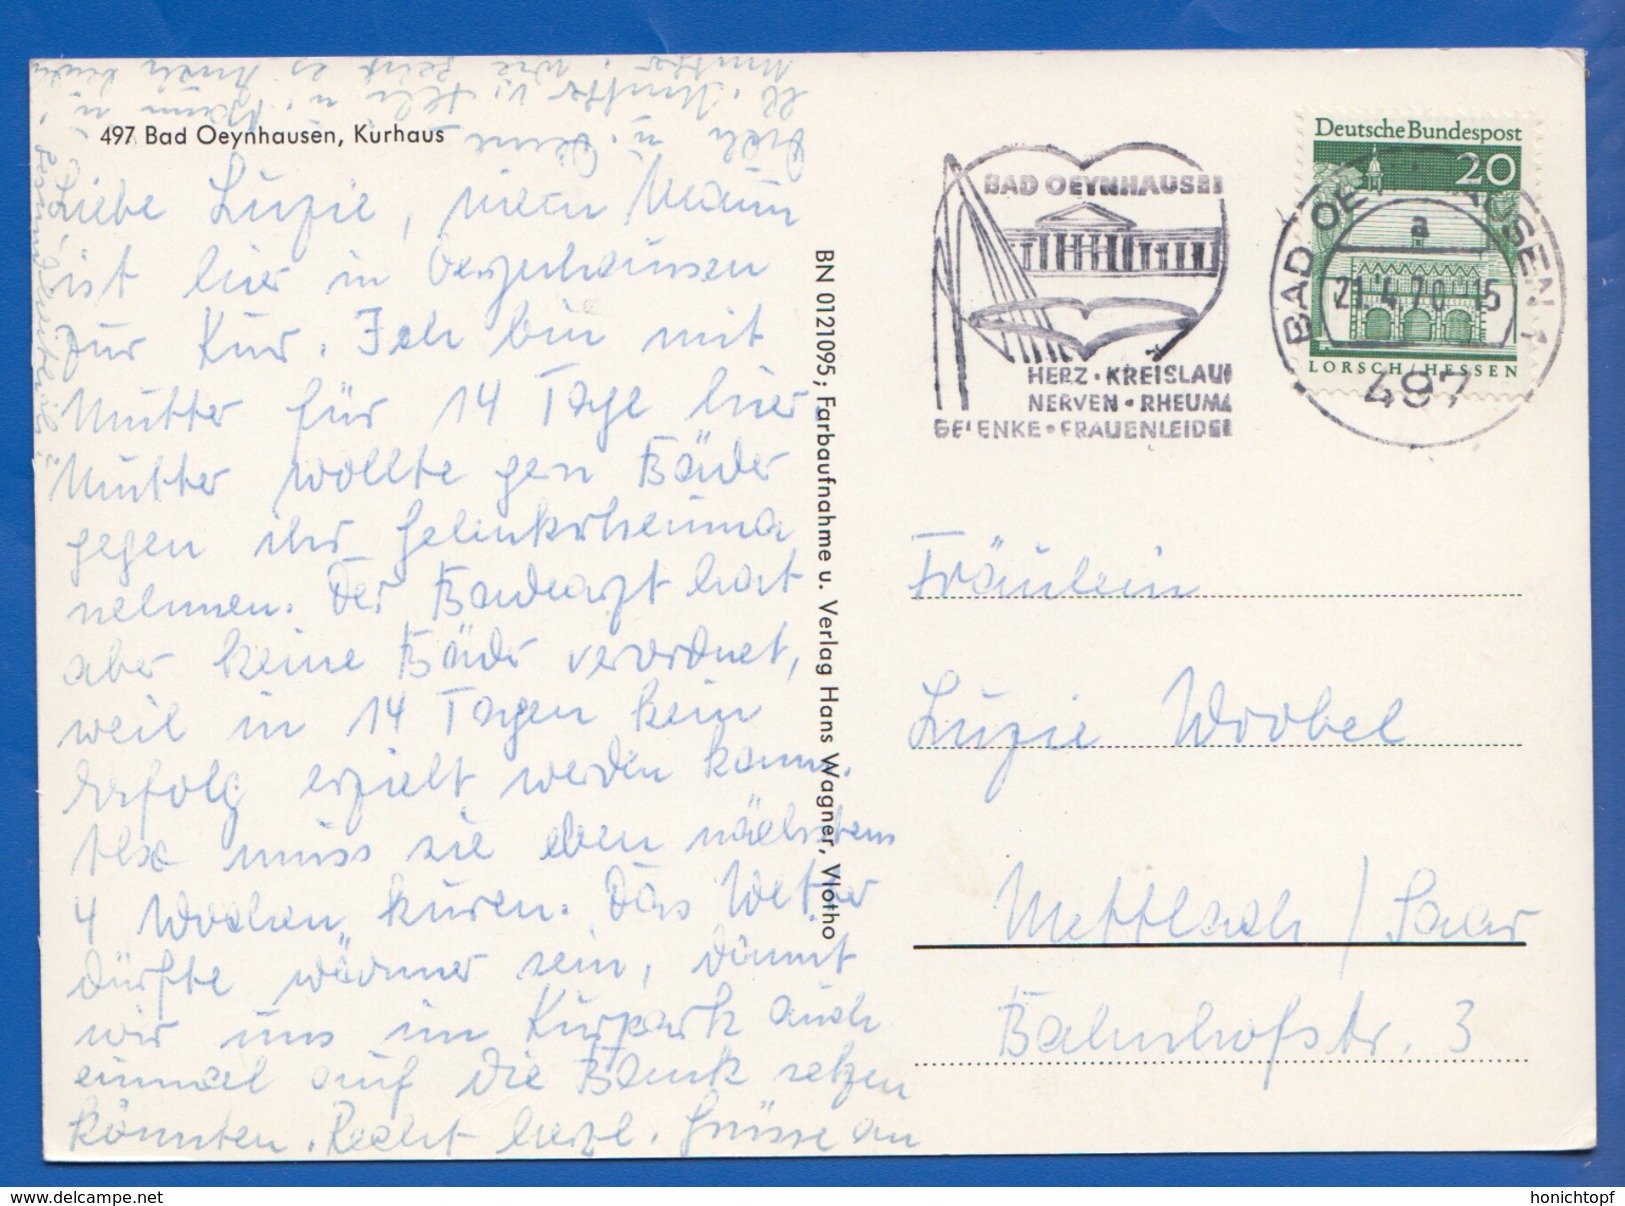 497 Bad Oeynhausen, Kurhaus
Liebe Luzie, mein Mann
ist hier in Oeynhausen
zur Kur. Ich bin mit
Mutter für 14 Tage hier
Mutter wollte gern Bäder
gegen ihr Gelenkrheuma
nehmen. Der Badearzt hat
aber keine Bäder verordnet,
weil in 14 Tagen kein
Erfolg erzielt werden kann.
Also muss sie eben nächstens
4 Wochen kuren. Das Wetter
dürfte wärmer sein, damit
wir uns im Kurpark auch
einmal auf die Bank setzen
könnten. Recht herzl. Grüsse an
Dich u. Deine
lb. Mutter v. u. Mann u.
Mutter. Wie geht es Euch
BN 0121095; Farbaufnahme u. Verlag Hans Wagner, Vlotho
BAD OEYNHAUSEN
HERZ • KREISLAUF
NERVEN • RHEUMA
GELENKE • FRAUENLEIDEN
Deutsche Bundespost
20
LORSCH/HESSEN
BAD OEYNHAUSEN 1
a
21.4.70-15
497
Fräulein
Luzie Wrobel
Mettlach / Saar
Bahnhofstr. 3
honichtopf